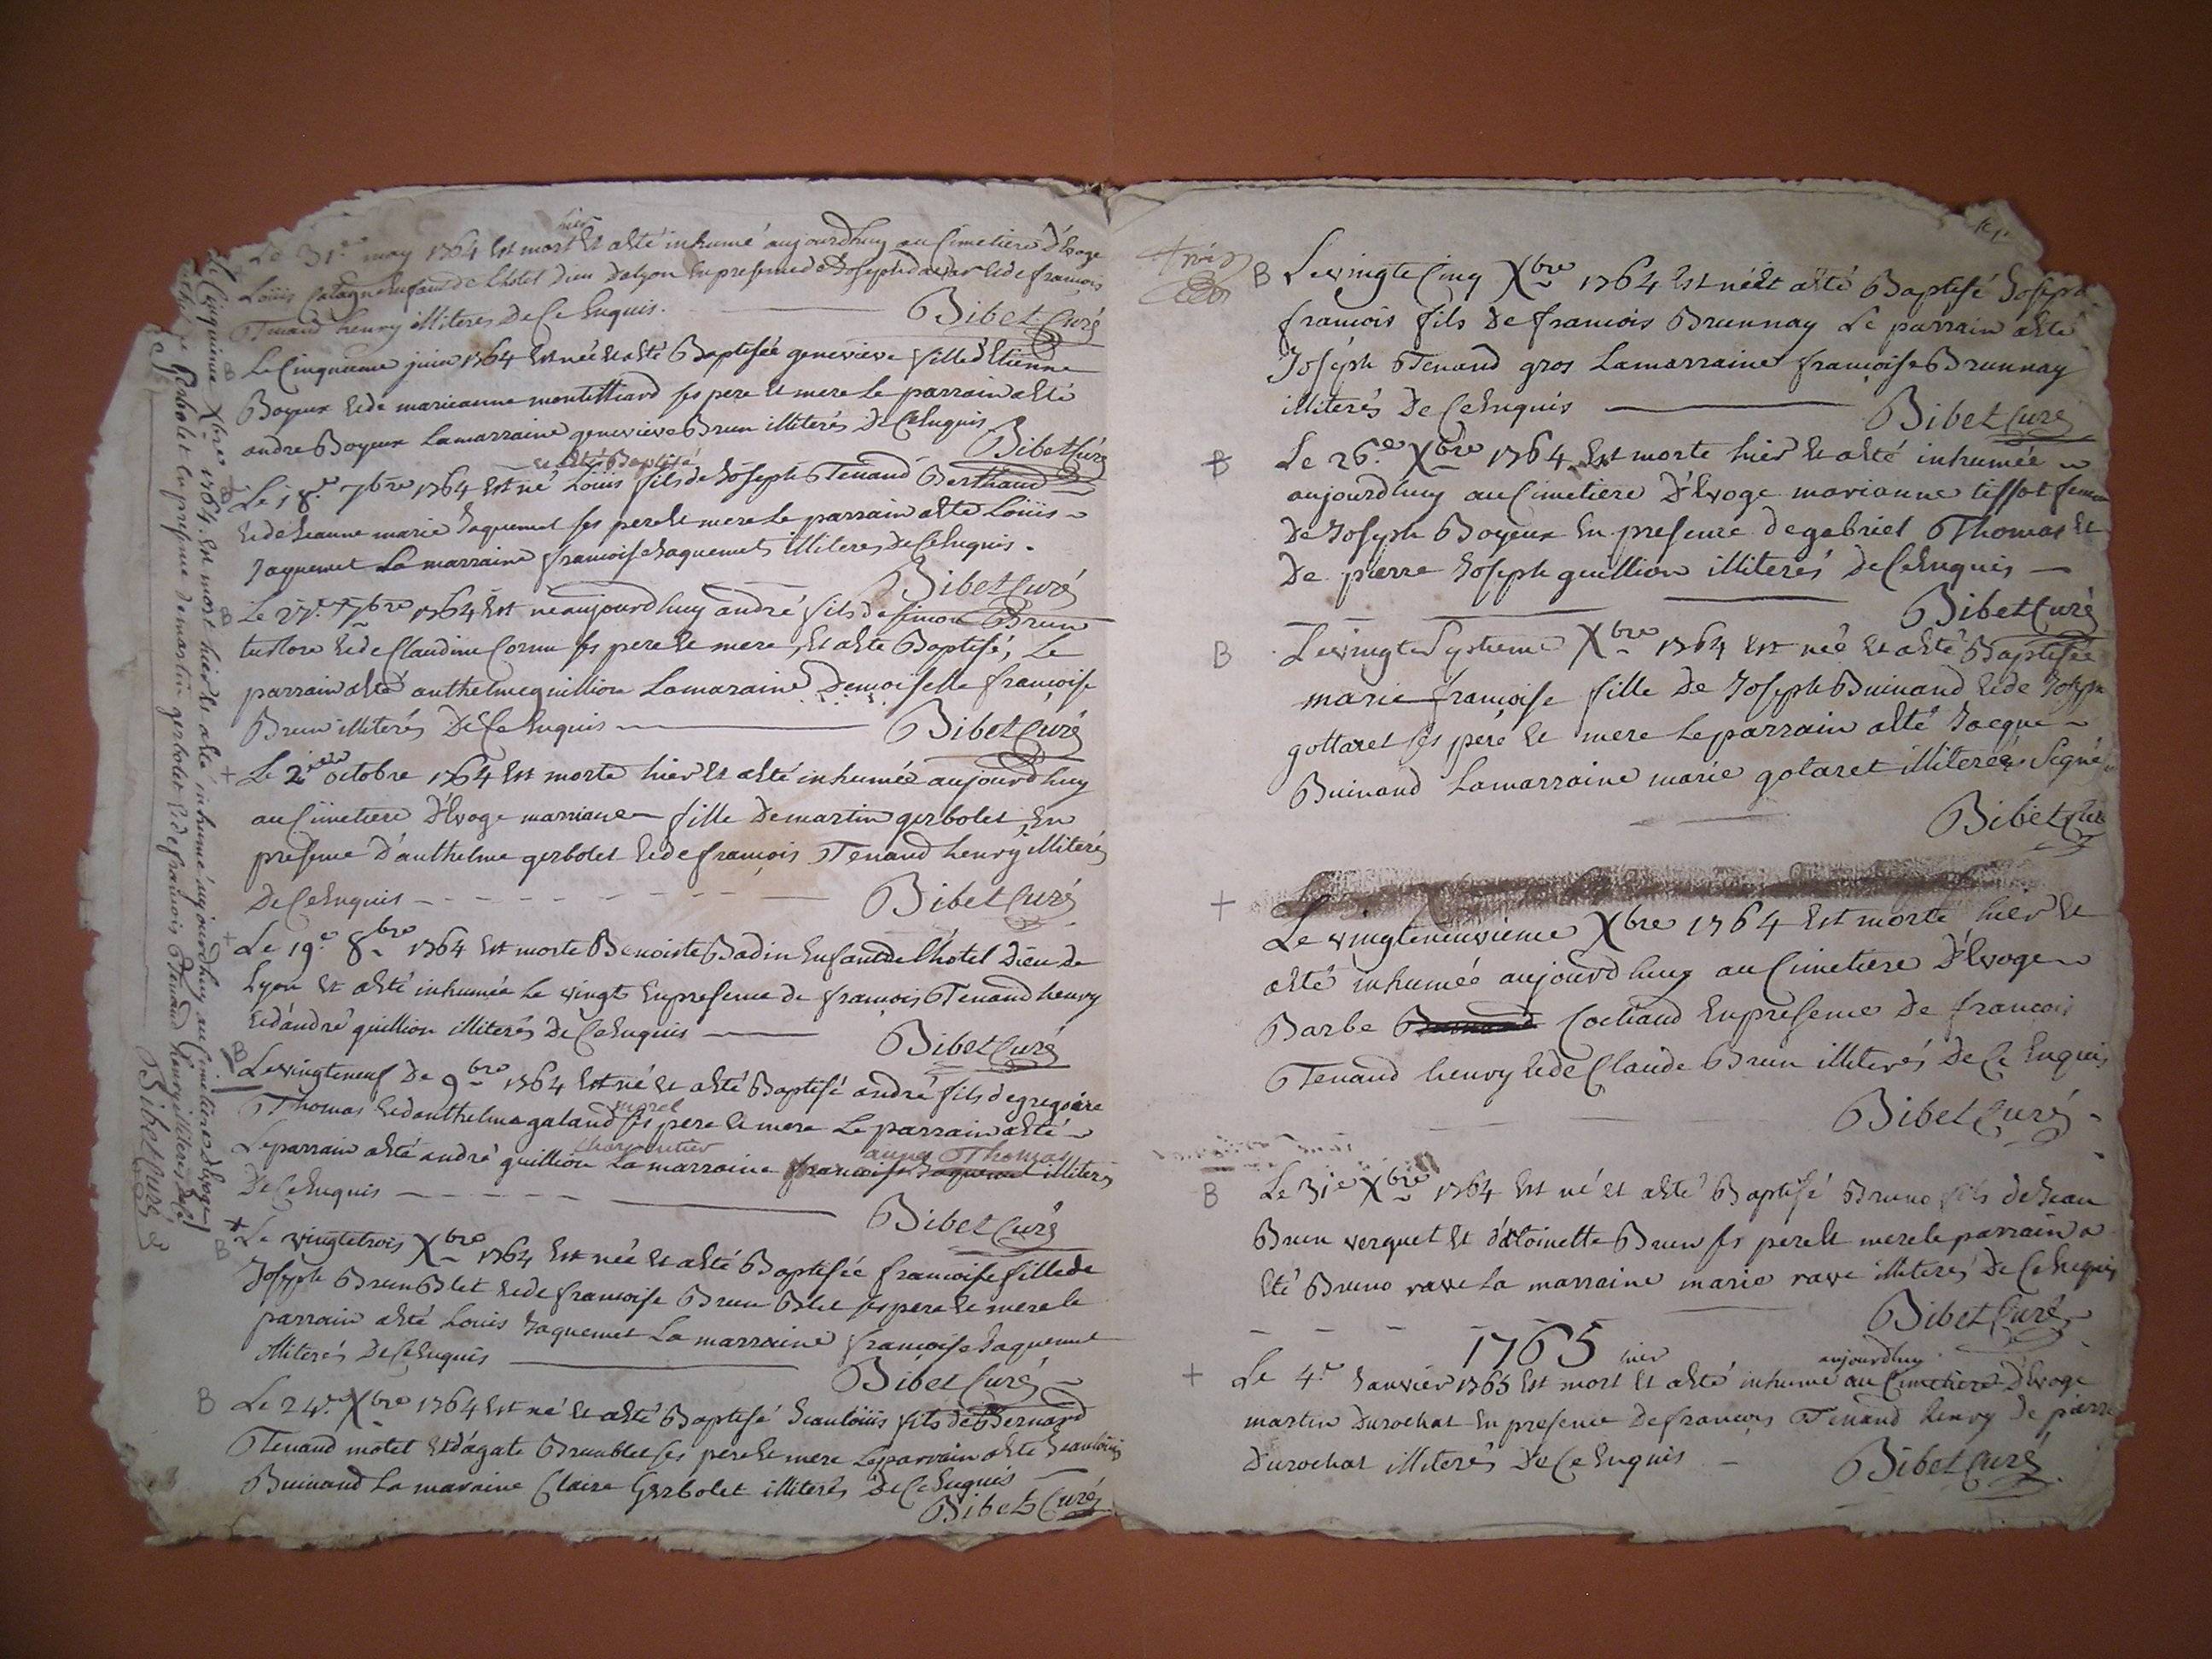 Le 31e may 1764 Est mort hier Et aété inhumé aujourdhuy au Cimetiere d'Evoge
Loüis Enfant de L'hotel Dieu de Lyon En presence de Joseph Et de francois
Tenand henry illiterés De Ce Enquis.
Bibet Curé
Le Cinquieme juin 1764 Est née Et aété Baptisée genevieve fille d'Etienne
Boyeux Et de marieanne montilliard ses pere Et mere Le parrain aété
andre Boyeux La marraine genevieve Brun illiterés De Ce Enquis
Bibet Curé
et aété Baptisé
Le 18e 7bre 1764 Est né Loüis fils de Joseph Tenand Berthand
Et de Jeanne marie Jaquemet ses pere Et mere Le parrain aété Loüis
Jaquemet La marraine francoise Jaquemet illiteres De Ce Enquis.
Bibet Curé
Le 27e 7bre 1764 Est né aujourdhuy andré fils de simon Brun
Et de Claudine Cornu ses pere Et mere, Et aété Baptisé, Le
parrain aété anthelme guillion La maraine Demoiselle françoise
Brun illiterés De Ce Enquis
Bibet Curé
Le 2ieme octobre 1764 Est morte hier Et aété inhumée aujourdhuy
au Cimetiere D'Evoge mariane fille De martin gerbolet, En
presence D'anthelme gerbolet Et de françois Tenand henry illiterés
De Ce Enquis
Bibet Curé
Le 19e 8bre 1764 Est morte Benoiste Badin Enfant de L'hotel Dieu De
Lyon Et aété inhumée Le vingt En presence de françois Tenand henry
Et d'andré guillion illiterés De Ce Enquis
Bibet Curé
Le vingteneuf De 9bre 1764 Est né Et aété Baptisé andré fils de gregoire
Thomas Et d'anthelma galand ses pere Et mere Le parrain aété
Le parrain aété andré guillion Charpentier La marraine francoise Jaquemet anne Thomas illiteres
De Ce Enquis
Bibet Curé
Le vingtetrois Xbre 1764 Est née Et aété Baptisée francoise fille de
Joseph Brun Blet Et de francoise Brun Blet ses pere Et mere Le
parrain aété Louis Jaquemet La marraine francoise Jaquemet
illiterés De Ce Enquis
Bibet Curé
Le 24e Xbre 1764 Est né Et aété Baptisé Jeanloüis fils de Bernard
Tenand motet Et d'agate Brunblet ses pere Et mere Le parrain aété Jeanloüis
Buinand La maraine Claire Gerbolet illiterés De Ce Enquis
Bibet Curé
Le Cinquieme Xbre 1764 Est mort hier Et aété inhumé aujourdhuy au Cimetiere d'Evoge
Gerbolet En presence de martin gerbolet Et de francois Tenand henry illiterés De Ce
Bibet Curé
B Le vingte Cinq Xbre 1764 Est né Et aété Baptisé Joseph
francois fils De francois Brunnay Le parrain aété
Joseph Tenand gros La marraine françoise Brunnay
illiterés De Ce Enquis
Bibet Curé
Le 26e Xbre 1764 Est morte hier Et aété inhumée
aujourdhuy au Cimetiere D'Evoge marianne tissot femme
De Joseph Boyeux En presence de gabriel Thomas Et
De pierre Joseph guillion illiterés De Ce Enquis
Bibet Curé
B Le vingte Septieme Xbre 1764 Est née Et aété Baptisée
marie françoise fille De Joseph Buinand Et de
gottaret ses peré Et mere Le parrain aété Jacque
Buinand La marraine marie gotaret illiterés
Bibet Curé
+ Le vingteneuvieme Xbre 1764 Est morte hier Et
aété inhumée aujourdhuy au Cimetiere D'Evoge
Barbe Cochand En presence De francois
Tenand henry Et de Claude Brun illiterés De Ce Enquis
Bibet Curé
B Le 31e Xbre 1764 Est né Et aété Baptisé Bruno fils de Jean
Brun verguet Et d'antoinette Brun ses pere Et mere Le parrain a
Eté Bruno rave La marraine marie rave illiterés De Ce Enquis
Bibet Curé
1765
hier aujourdhuy
+ Le 4e Janvier 1765 Est mort Et aété inhumé au Cimetiere D'Evoge
martin Durochat En presence De francois Tenand henry De pierre
Durochat illiterés De Ce Enquis
Bibet Curé